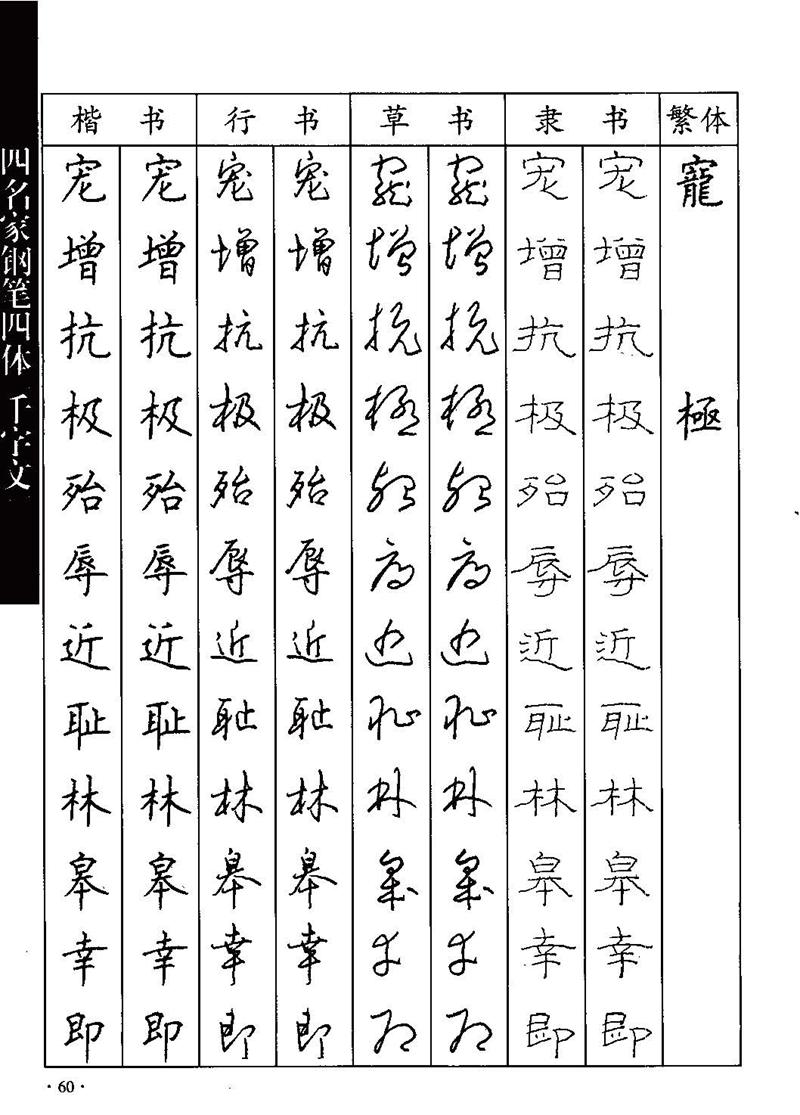 四名家钢笔四体 千字文
楷 书 行 书 草 书 隶 书 繁体
宠 宠 宠 宠 宠 宠 宠 宠 寵
增 增 增 增 增 增 增 增
抗 抗 抗 抗 抗 抗 抗 抗
极 极 极 极 極 極 极 极 極
殆 殆 殆 殆 殆 殆 殆 殆
辱 辱 辱 辱 辱 辱 辱 辱
近 近 近 近 近 近 近 近
耻 耻 耻 耻 耻 耻 耻 耻
林 林 林 林 林 林 林 林
皋 皋 皋 皋 皋 皋 皋 皋
幸 幸 幸 幸 幸 幸 幸 幸
即 即 即 即 即 即 即 即
·60·